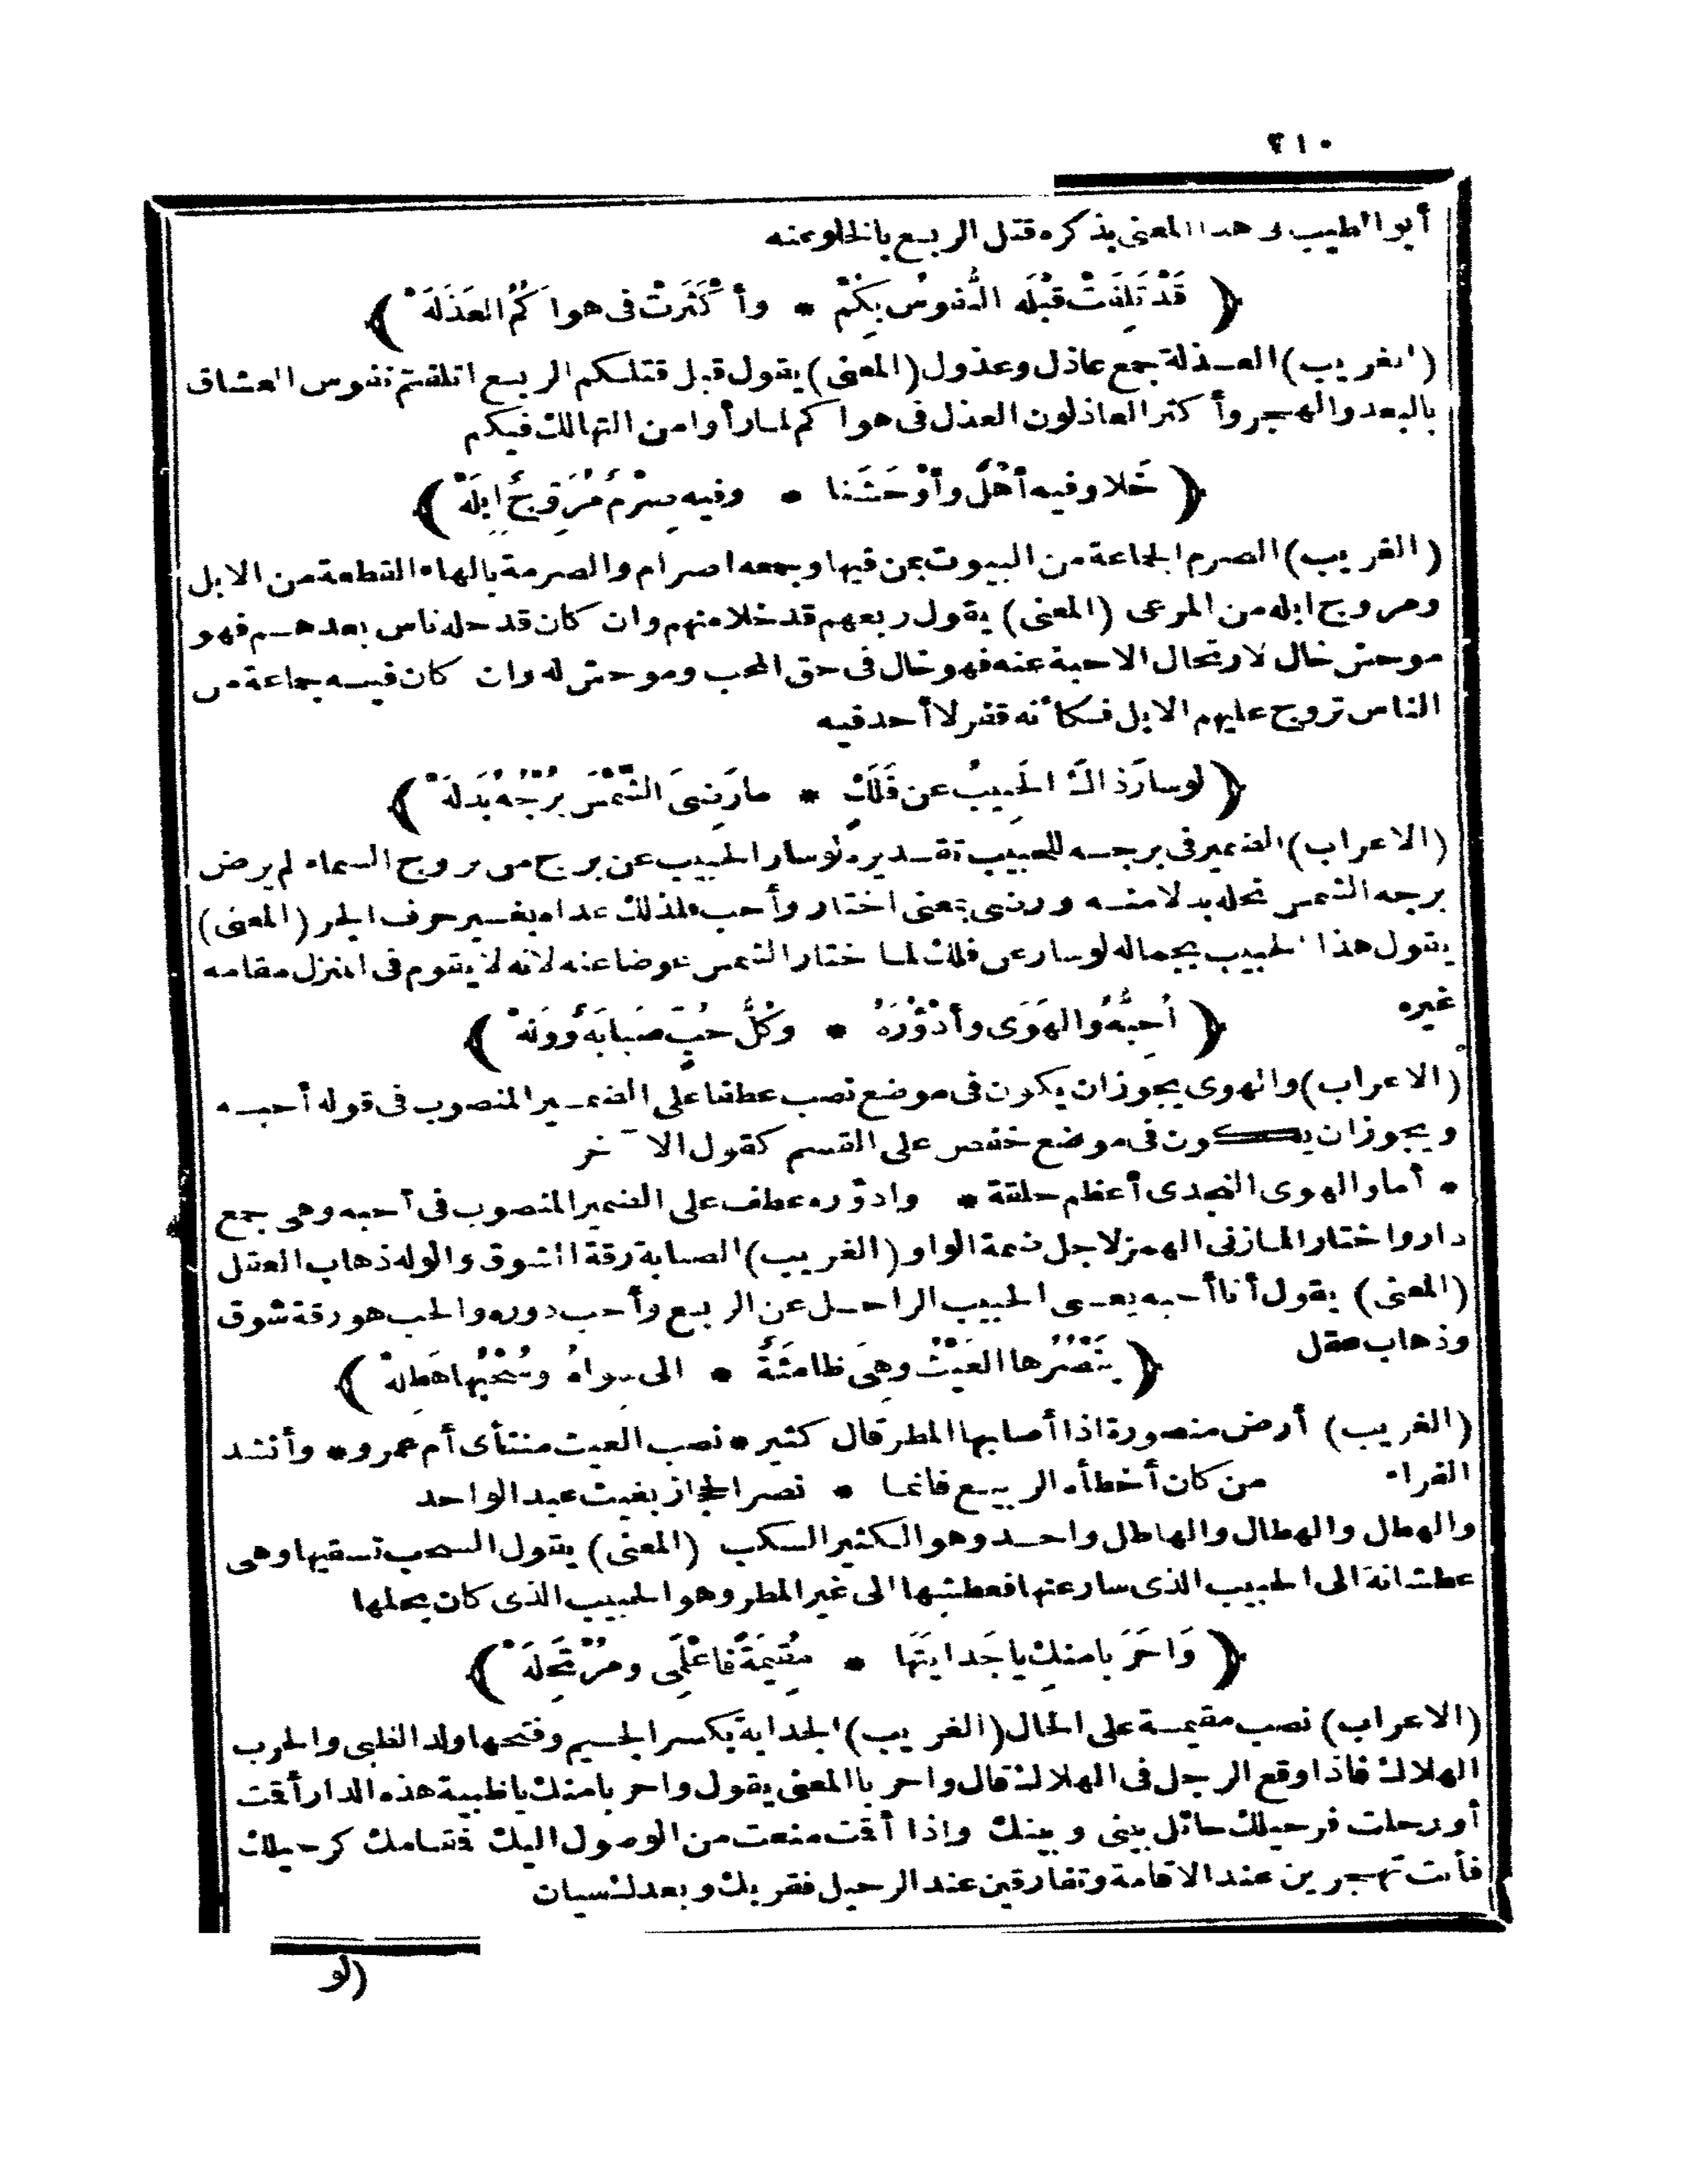 ٢١٠
أبو الطيب فى هذا المعنى بذكره قتل الربع بالخلو منه
﴿ قَدْ تَلِفَتْ قَبْلَه النُّفوسُ بِكُمْ * وأَكْثَرَتْ فى هواكُمُ العَذَلَهْ ﴾
(الغريب) العـذلة جمع عاذل وعذول (المعنى) يقول قبل قتلكم الربع اتلفتم نفوس العشاق
بالبعد والهجر وأكثر العاذلون العذل فى هواكم لمـا رأوا من التهالك فيكم
﴿ خَلا وفيه أهْلٌ وأوْحَشَنا * وفيه صِرْمٌ مُرَوِّحٌ إِبِلَهْ ﴾
(الغريب) الصرم الجماعة من البيوت بمن فيها وجمعه اصرام والصرمة بالهاء القطعة من الابل
ومروح ابله من المرعى (المعنى) يقول ربعهم قد خلا منهم وان كان قد حله ناس بعدهـم فهو
موحش خال لارتحال الاحبة عنه فهو خال فى حق المحب وموحش له وان كان فيـه جماعة من
الناس تروح عليهم الابل فـكأنه قفر لا أحد فيه
﴿ لو سارَ ذاكَ الحَبِيبُ عن فَلَكٍ * ما رَضِىَ الشَّمْسَ بُرْجُه بَدَلَهْ ﴾
(الاعراب) الضمير فى برجـه للحبيب تقـديره لو سار الحبيب عن برج من بروج السماء لم يرض
برجه الشمس تحله بدلا منـه ورضى بمعنى اختار وأحب فلذلك عداه بغـير حرف الجر (المعنى)
يقول هذا الحبيب بجماله لو سار عن فلك لمـا اختار الشمس عوضا عنه لانه لا يقوم فى المنزل مقامه
غيره
﴿ أُحِبُّهُ والهَوَى وأدْؤُرَهُ * وكُلُّ حُبٍّ صَبابَةٌ ووَلَهْ ﴾
(الاعراب) والهوى يجوز ان يكون فى موضع نصب عطفا على الضمـير المنصوب فى قوله أحبـه
ويجوز ان يكـون فى موضع خفض على القسم كقول الآخر
* أما والهوى النجدى أعظم حلفة * وادؤره عطف على الضمير المنصوب فى أحبه وهى جمع
دار واختار المـازنى الهمز لاجل ضمة الواو (الغريب) الصبابة رقة الشوق والوله ذهاب العقل
(المعنى) يقول أنا أحبه يعـنى الحبيب الراحـل عن الربع وأحب دوره والحب هو رقة شوق
وذهاب عقل
﴿ يَنْصُرُها الغَيْثُ وهِىَ ظامئَةٌ * الى سِواهُ وسُحْبُها هَطِلَهْ ﴾
(الغريب) أرض منصورة اذا أصابها المطر قال كثير * نصب الغيث منتأى أم عمرو * وأنشد
الفراء من كان أخطأه الربيـع فانما * نصر الحجاز بغيث عبد الواحد
والهطل والهطال والهاطل واحـد وهو الـكثير السكب (المعنى) يقول السحب تـسقيها وهى
عطشانة الى الحبيب الذى سار عنها فعطشها الى غير المطر وهو الحبيب الذى كان يحلها
﴿ وَاحَرَبا منكِ يا جَدايَتَها * مُقِيمَةً فاعْلَمِى ومُرْتَحِلَهْ ﴾
(الاعراب) نصب مقيمـة على الحال (الغريب) الجداية بكسر الجـيم وفتحها ولد الظبى والحرب
الهلاك فاذا وقع الرجل فى الهلاك قال واحربا المعنى يقول واحربا منك يا ظبية هذه الدار أقمت
أو رحلت فرحيلك حائل بينى وبينك واذا أقمت منعت من الوصول اليك فمقامك كرحيلك
فأنت تهجرين عند الاقامة وتفارقين عند الرحيل فقربك وبعدك سيان
(لو